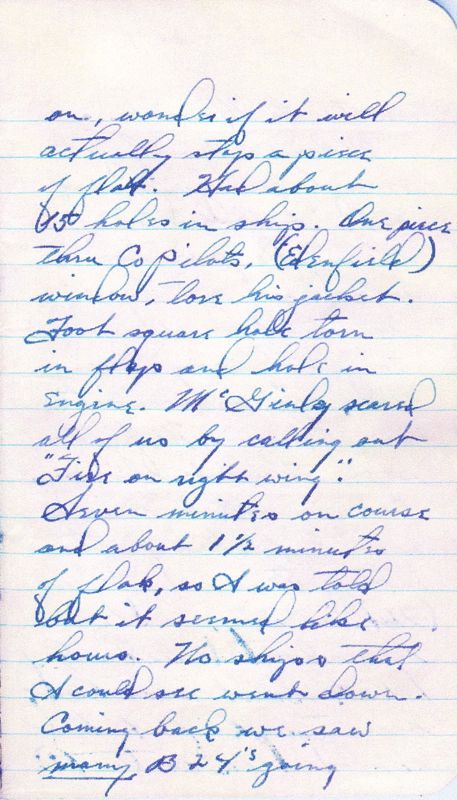 on, wonder if it will
actually stop a piece
of flak. Had about
150 holes in ship. One piece
thru Co pilots, (Edenfield)
window, tore his jacket.
Foot square hole torn
in flap and hole in
engine. McGinley scared
all of us by calling out
"Fire on right wing".
Seven minutes on course
and about 1 1/2 minutes
of flak, so I was told
but it seemed like
hours. No ships that
I could see went down.
Coming back we saw
many B 24's going